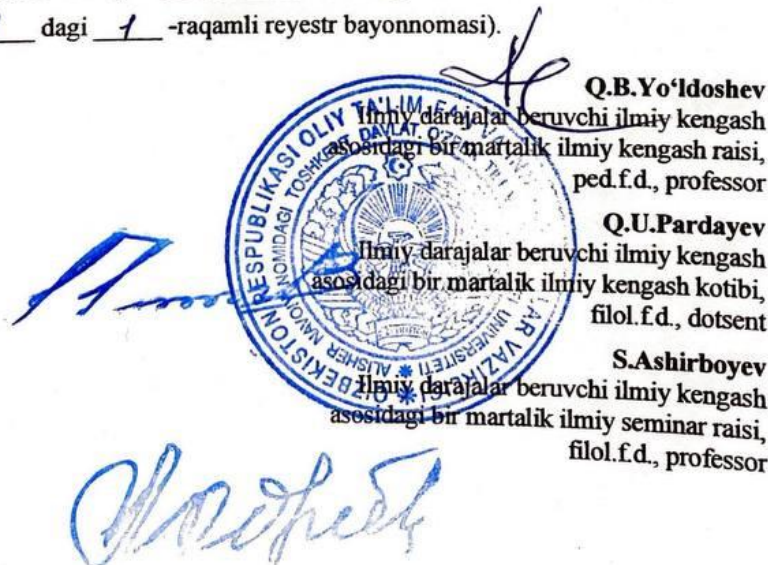 dagi 1 -raqamli reyestr bayonnomasi).
Q.B.Yo‘ldoshev
Ilmiy darajalar beruvchi ilmiy kengash
asosidagi bir martalik ilmiy kengash raisi,
ped.f.d., professor
Q.U.Pardayev
Ilmiy darajalar beruvchi ilmiy kengash
asosidagi bir martalik ilmiy kengash kotibi,
filol.f.d., dotsent
S.Ashirboyev
Ilmiy darajalar beruvchi ilmiy kengash
asosidagi bir martalik ilmiy seminar raisi,
filol.f.d., professor
O‘ZBEKISTON RESPUBLIKASI OLIY TA'LIM, FAN VA
ALISHER NAVOIY NOMIDAGI TOSHKENT DAVLAT O‘ZBEK TILI
UNIVERSITETI